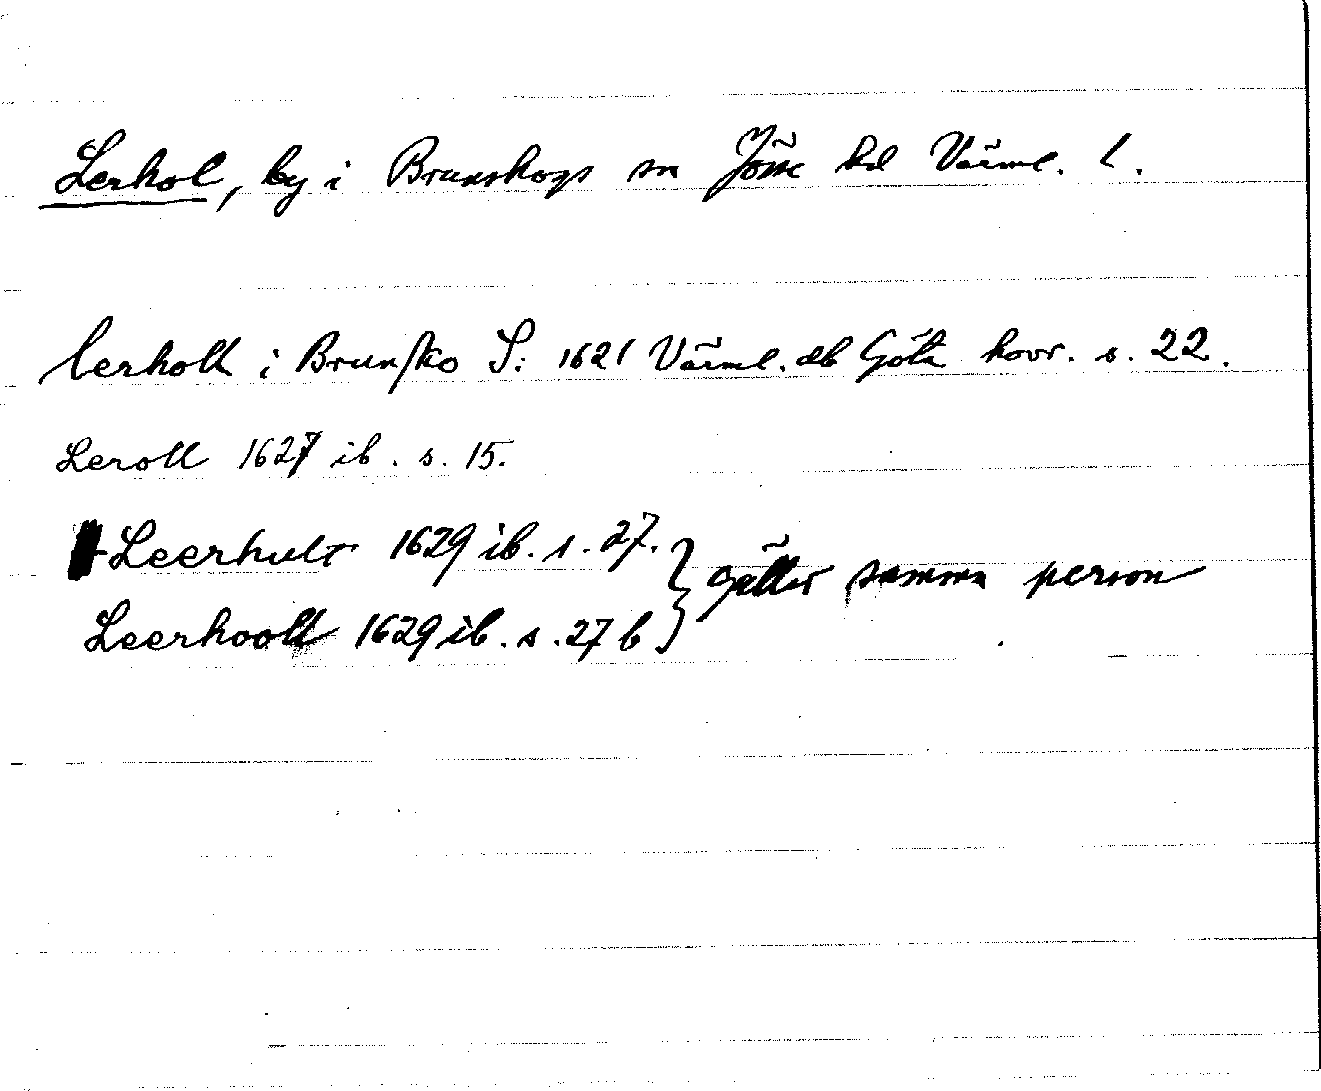 Lerhol, by i Brunskogs sn Jösse hd Värml. l.
lerholl i Brunsko S: 1621 Värml. db Göta hovr. s. 22.
Leroll 1627 ib. s. 15.
Leerhult 1629 ib. s. 27. } gäller samma person
Leerhooll 1629 ib. s. 27 b